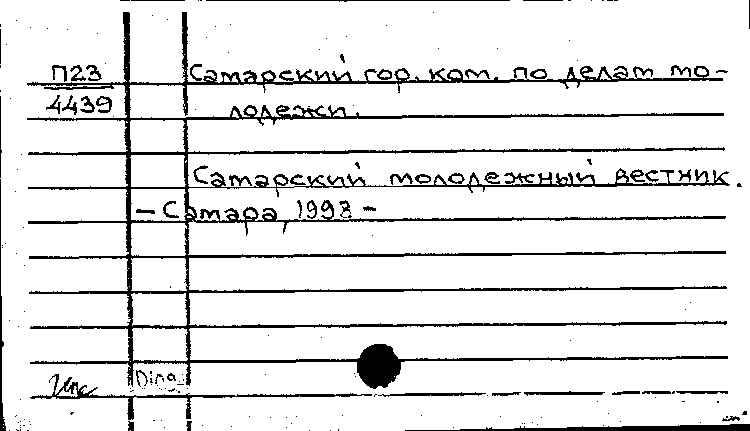 П23
4439
Самарский гор. ком. по делам мо-
лодежи.
Самарский молодежный вестник.
– Самара, 1993 –